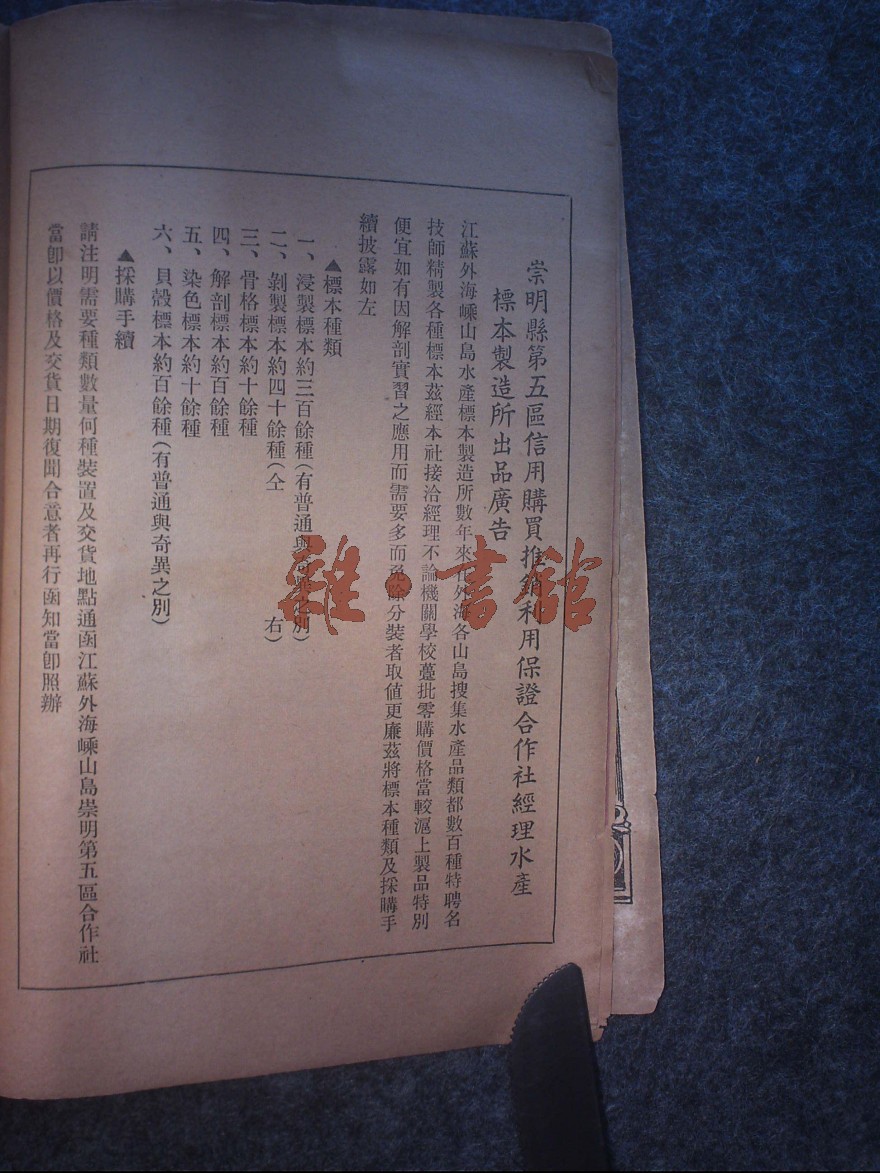 崇明縣第五區信用購買推銷利用保證合作社經理水產
標本製造所出品廣告
江蘇外海嵊山島水產標本製造所數年來在外海各山島搜集水產品類都數百種特聘名
技師精製各種標本茲經本社接洽經理不論機關學校躉批零購價格當較滬上製品特別
便宜如有因解剖實習之應用而需要多而免除分裝者取值更廉茲將標本種類及採購手
續披露如左
▲標本種類
一、浸製標本約三百餘種(有普通與奇異之別)
二、剝製標本約四十餘種(仝 右)
三、骨格標本約十餘種
四、解剖標本約百餘種
五、染色標本約十餘種
六、貝殼標本約百餘種(有普通與奇異之別)
▲採購手續
請注明需要種類數量何種裝置及交貨地點通函江蘇外海嵊山島崇明第五區合作社
當卽以價格及交貨日期復聞合意者再行函知當卽照辦
雜·書館